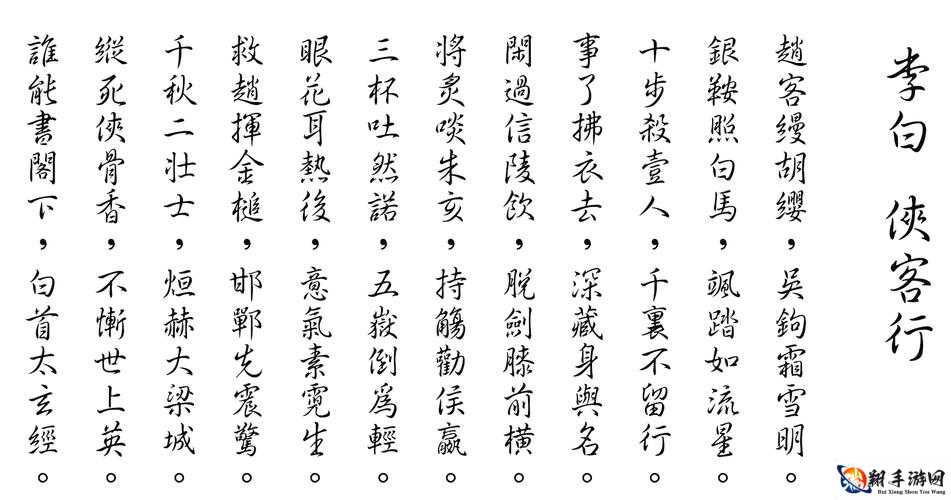 李白 俠客行
趙客縵胡纓，吳鉤霜雪明。
銀鞍照白馬，颯踏如流星。
十步殺壹人，千裏不留行。
事了拂衣去，深藏身與名。
閑過信陵飲，脫劍膝前橫。
將炙啖朱亥，持觴勸侯嬴。
三杯吐然諾，五嶽倒爲輕。
眼花耳熱後，意氣素霓生。
救趙揮金槌，邯鄲先震驚。
千秋二壯士，烜赫大梁城。
縱死俠骨香，不慚世上英。
誰能書閣下，白首太玄經。
翔手游网
Rui Xiang Shou You Wang